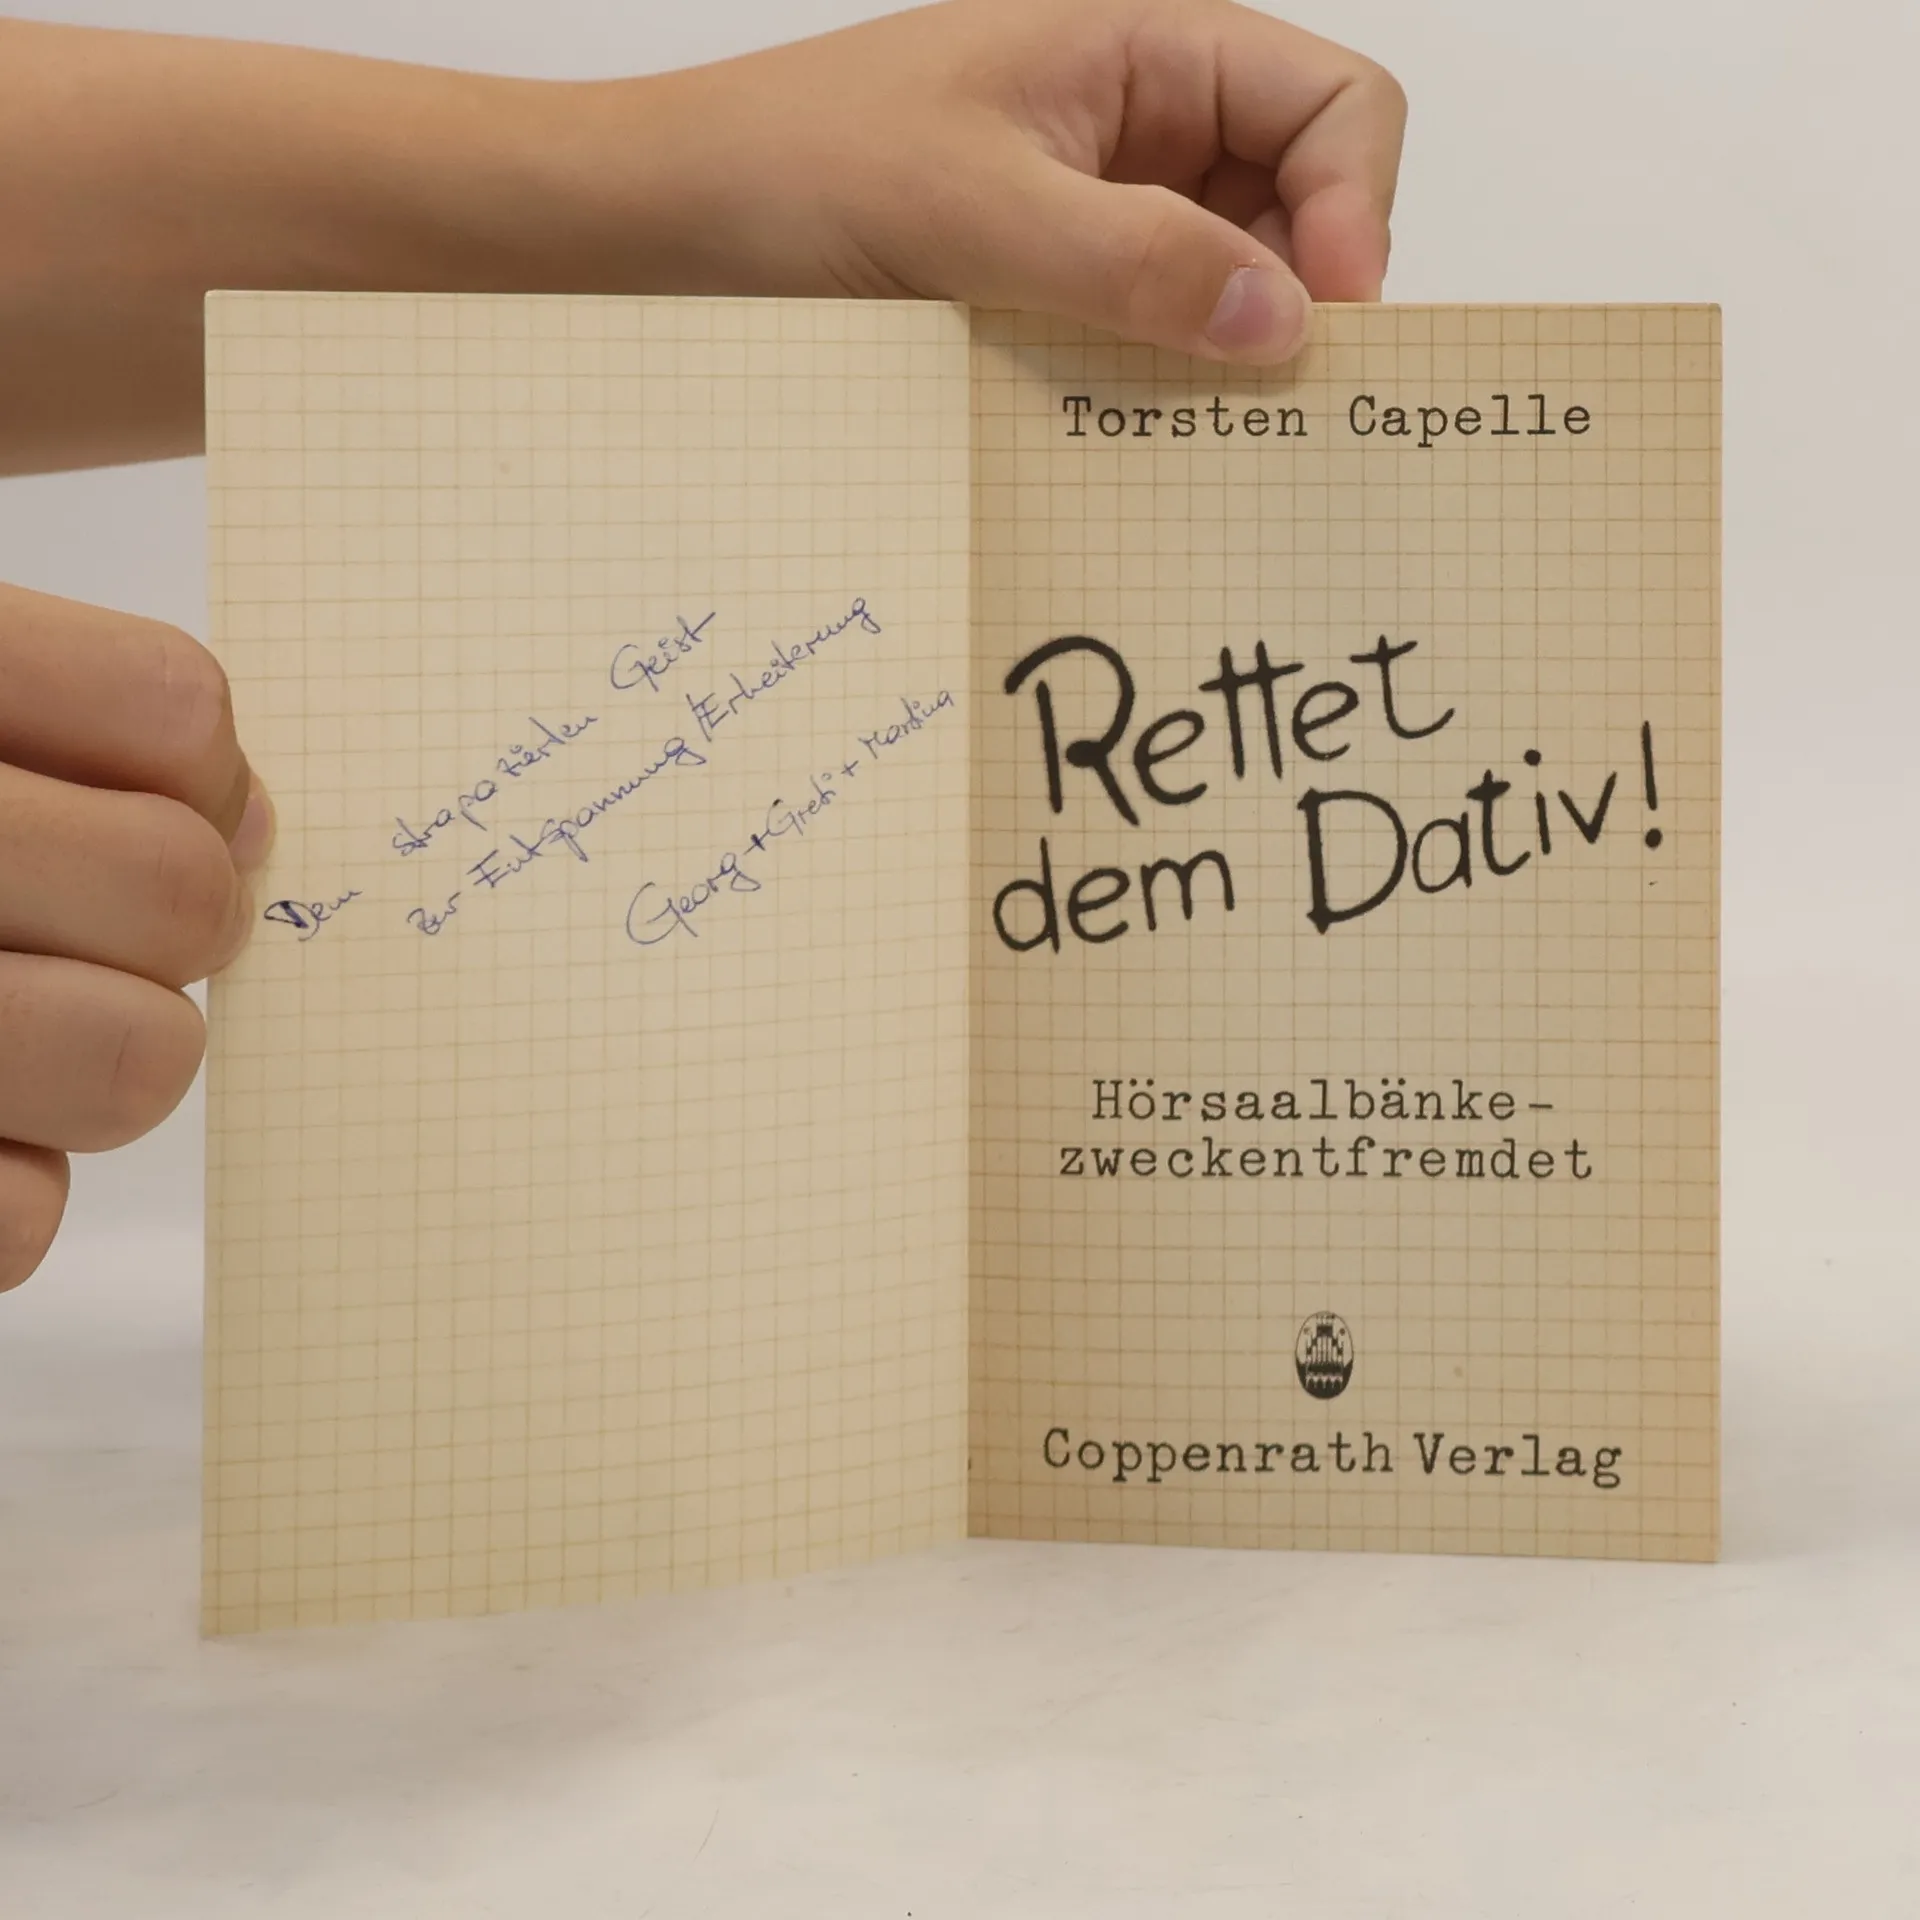 Dem strapazierten Geist
zur Entspannung/Erheiterung
Georg + Greti + Martina
Torsten Capelle
Rettet
dem Dativ!
Hörsaalbänke-
zweckentfremdet
Coppenrath Verlag